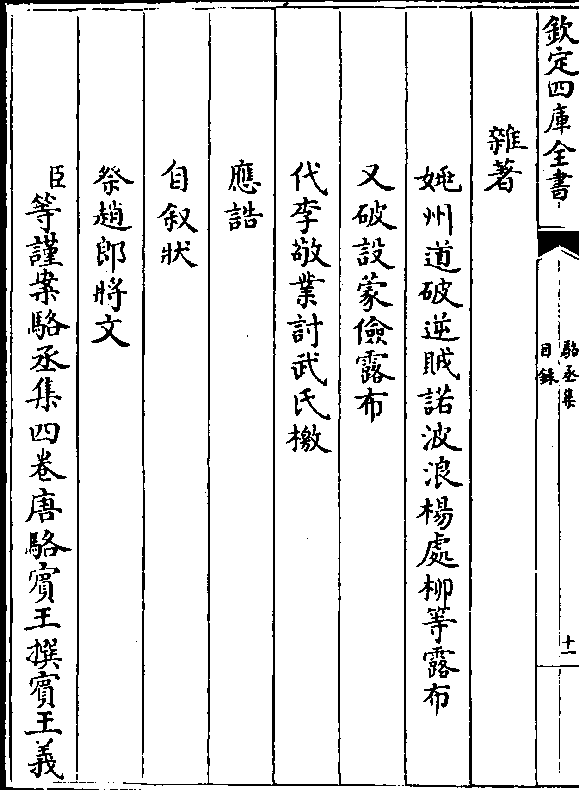 欽定四庫全書
駱丞集
目録
十一
雜著
姚州道破逆賊諾波浪楊處柳等露布
又破設蒙儉露布
代李敬業討武氏檄
應誥
自叙狀
祭趙郎將文
臣等謹案駱丞集四卷唐駱賓王撰賓王義